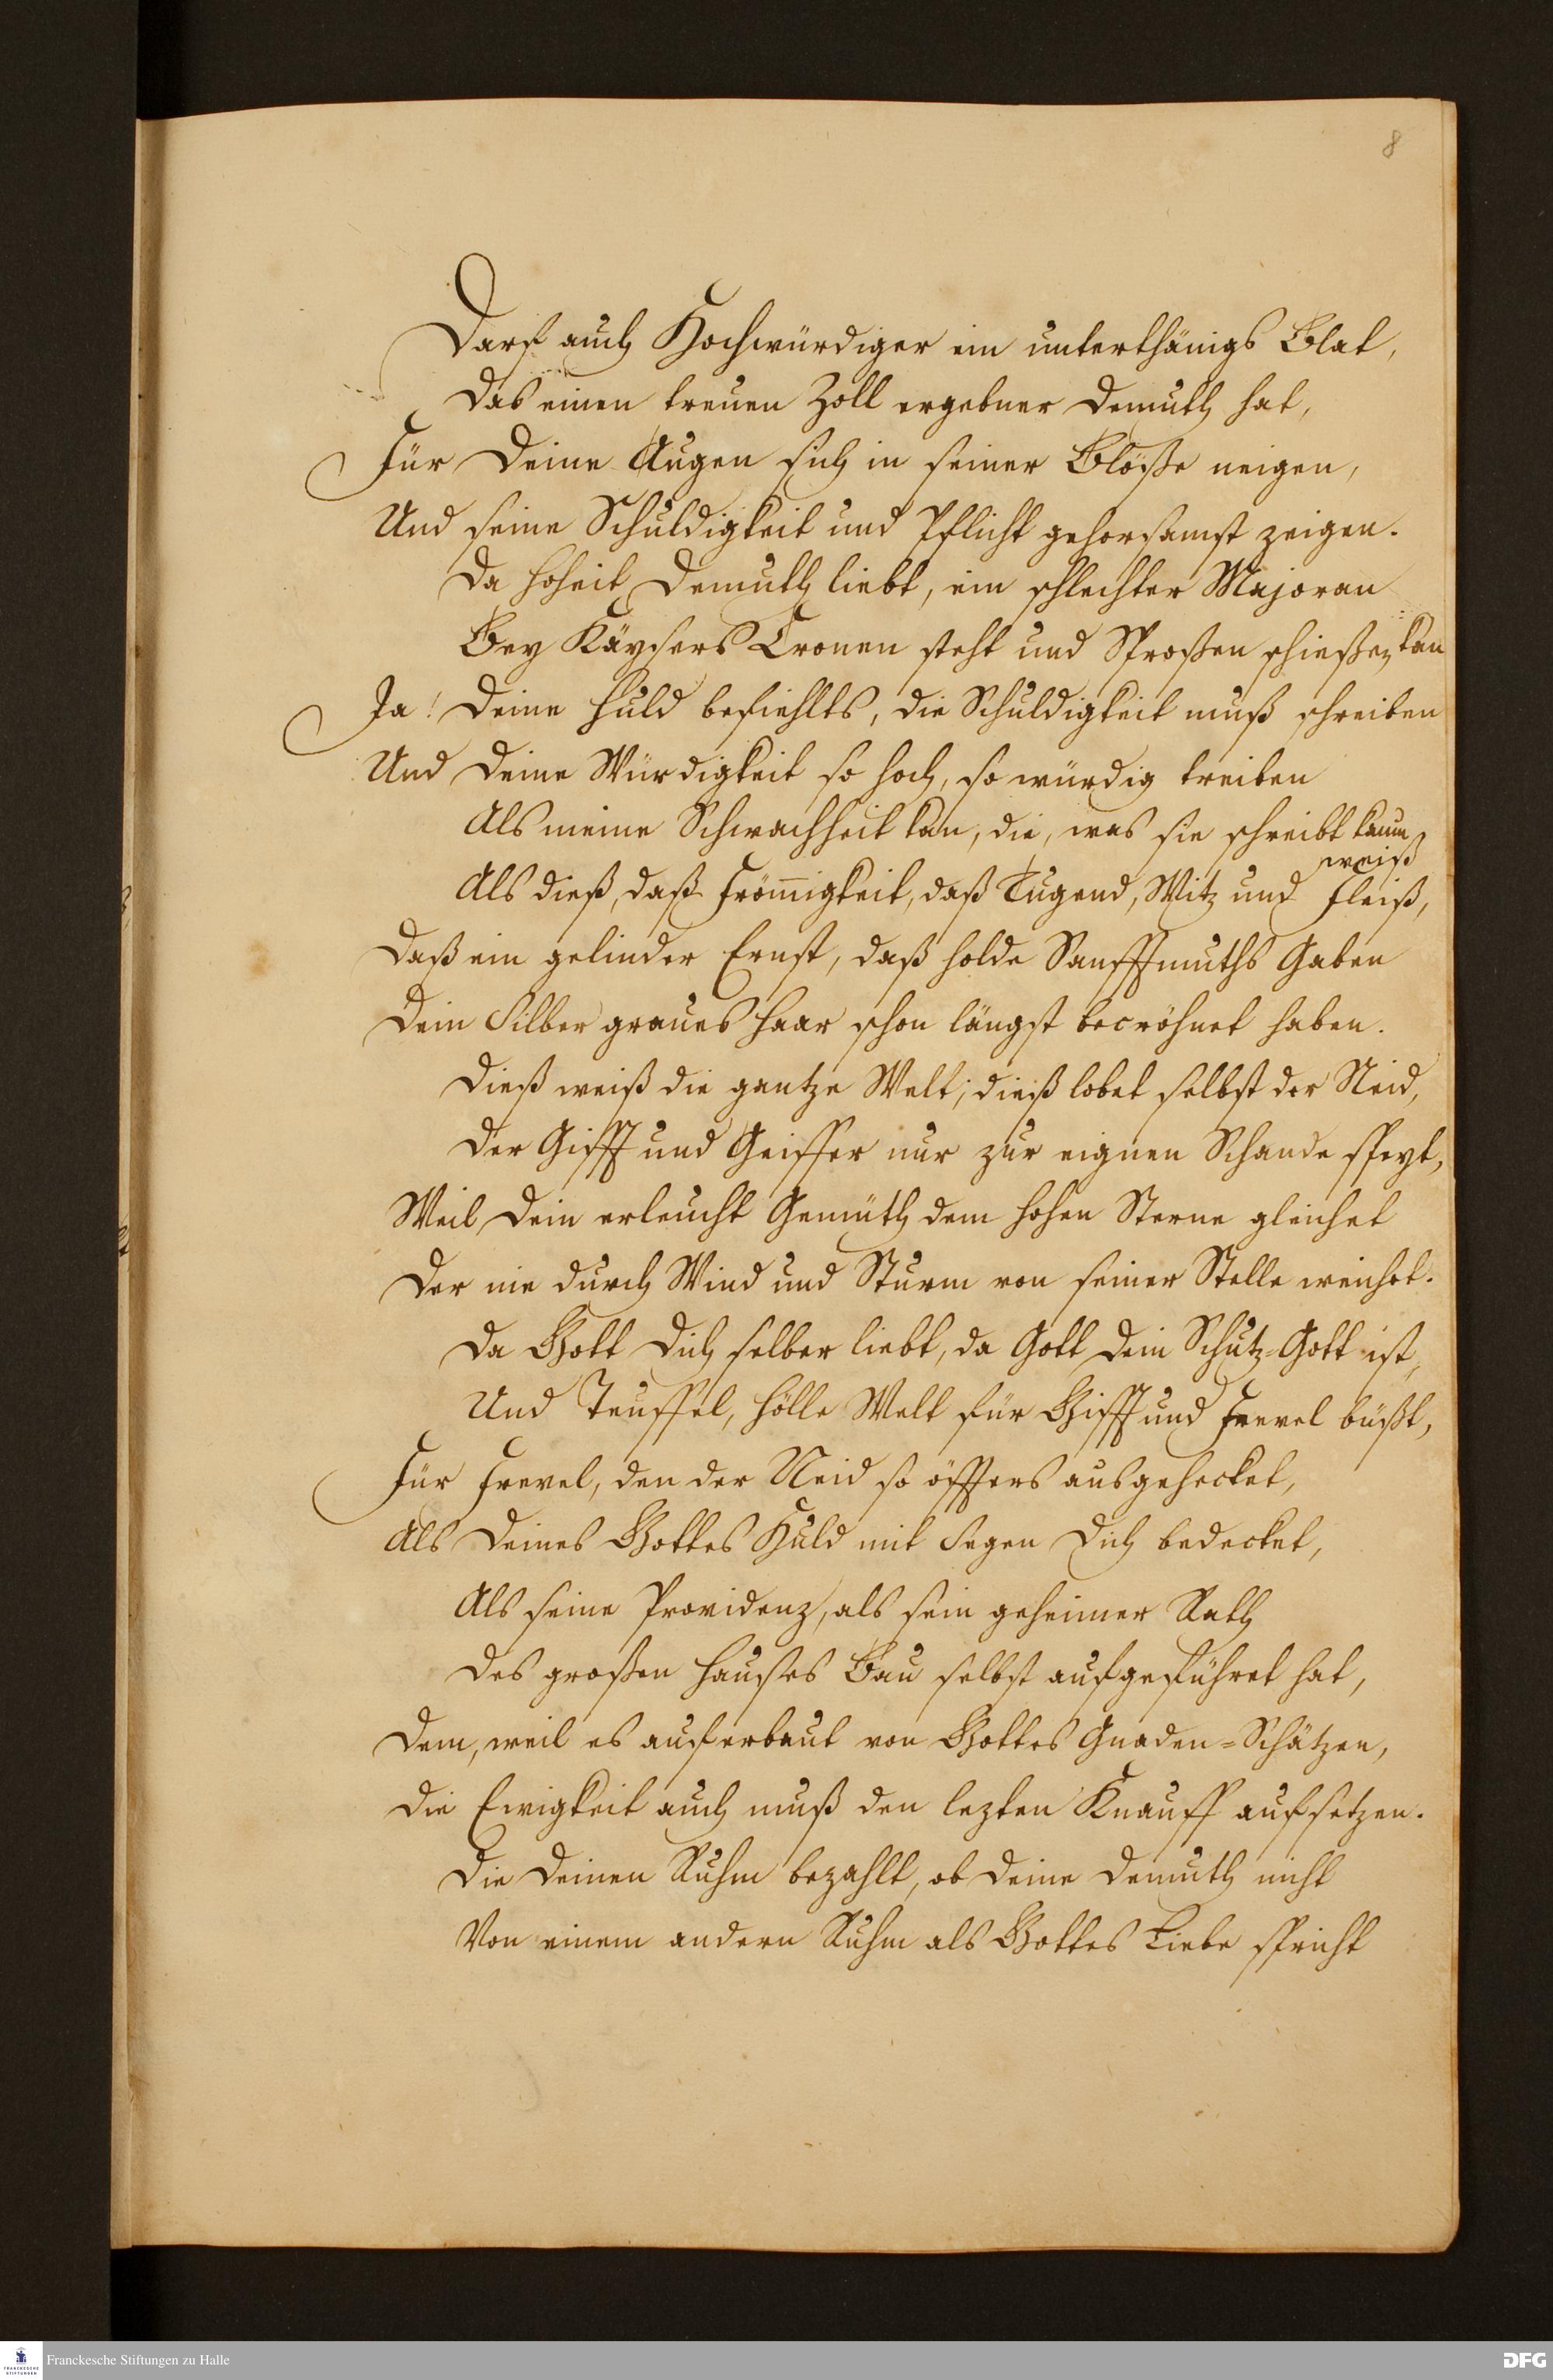 8
Darf auch Hochwürdiger ein unterthänigs Blat,
Das einen treuen Zoll ergebner Demuth hat,
Für Deine Augen sich in seiner Blöße neigen,
Und seine Schuldigkeit und Pflicht gehorsamst zeigen.
Da Hoheit Demuth liebt, ein schlechter Majoran
Bey Käysers Cronen steht und Sproßen schießen kan
Ja! Deine Huld befiehlts, die Schuldigkeit muß schreiben
Und Deine Würdigkeit so hoch, so würdig treiben
Als meine Schwachheit kan, die, was sie schreibt kaum
weiß
Als dieß, daß Frömmigkeit, daß Tugend, Witz und Fleiß,
Daß ein gelinder Ernst, daß holde Sanfftmuths Gaben
Dein Silber graues Haar schon längst becröhnet haben.
Dieß weiß die gantze Welt; dieß lobet selbst der Neid,
Der Gifft und Geiffer nur zur eignen Schande speyt,
Weil Dein erleucht Gemüth dem hohen Sterne gleichet
Der nie durch Wind und Sturm von seiner Stelle weichet.
Da Gott Dich selber liebt, da Gott Dein Schutz-Gott ist,
Und Teuffel, Hölle Welt für Gifft und Frevel büßt,
Für Frevel, den der Neid so öffters ausgehecket,
Als Deines Gottes Huld mit Segen Dich bedecket,
Als seine Providenz, als sein geheimer Rath
Des großen Hauses Bau selbst aufgeführet hat,
Dem, weil es auferbaut von Gottes Gnaden-Schätzen,
Die Ewigkeit auch muß den lezten Knauff aufsetzen.
Die Deinen Ruhm bezahlt, ob Deine Demuth nicht
Von einem andern Ruhm als Gottes Liebe spricht
Franckesche Stiftungen zu Halle
DFG